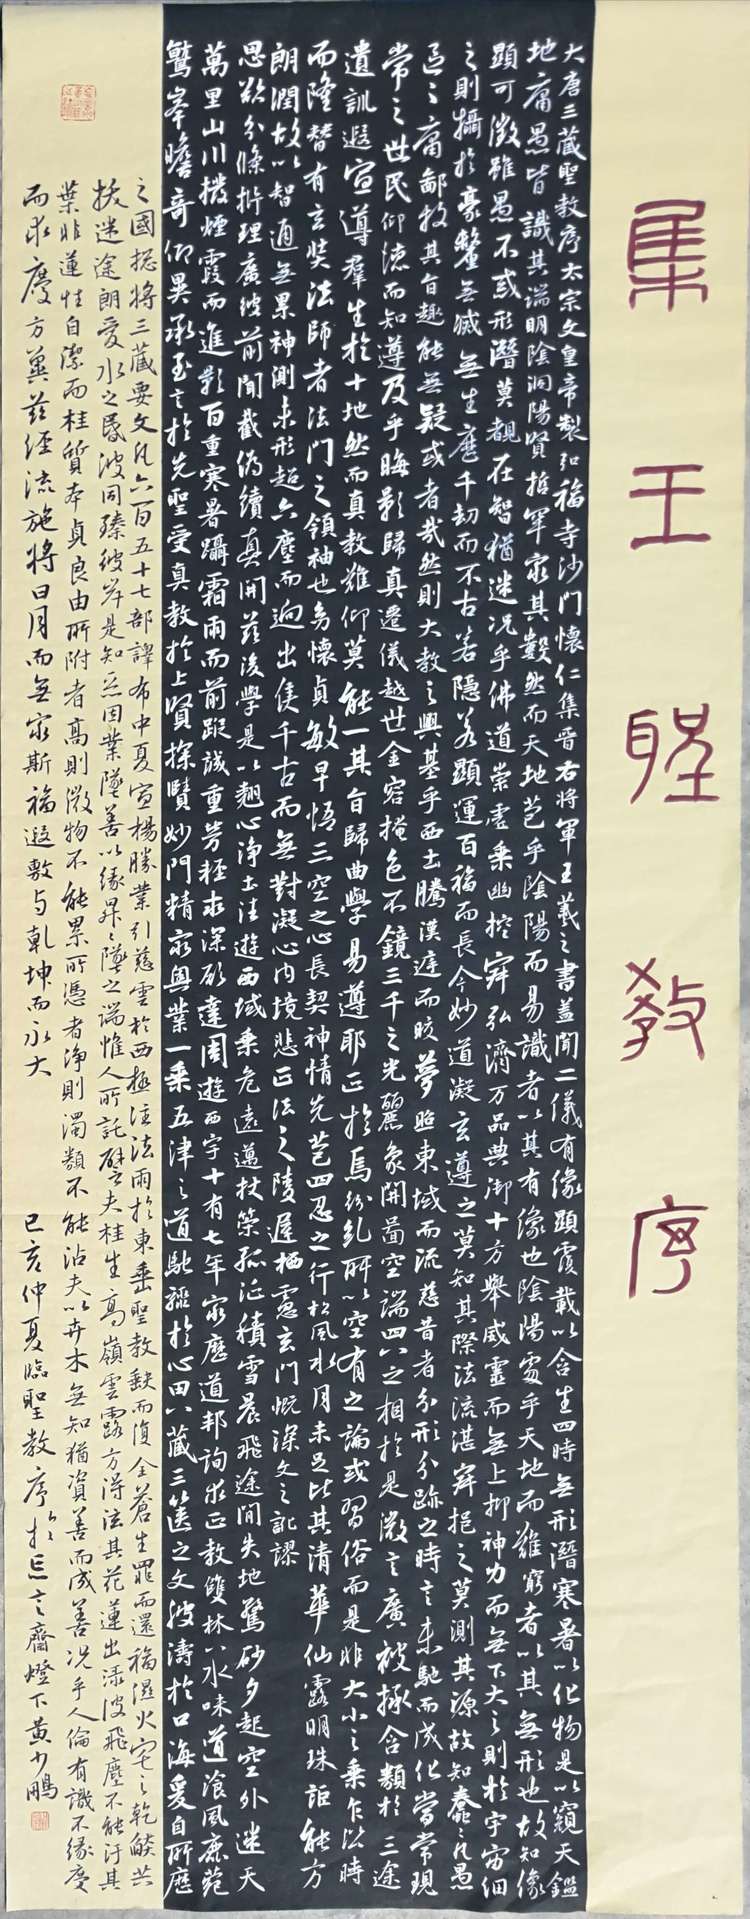 集王聖教序
大唐三藏聖教序太宗文皇帝製弘福寺沙門懷仁集晉右將軍王羲之書蓋聞二儀有像顯覆載以含生四時無形潛寒暑以化物是以窺天鑑
地庸愚皆識其端明陰洞陽賢哲罕窮其數然而天地苞乎陰陽而易識者以其有像也陰陽處乎天地而難窮者以其無形也故知像
顯可徵雖愚不惑形潛莫覩在智猶迷況乎佛道崇虛乘幽控寂弘濟万品典御十方舉威靈而無上抑神力而無下大之則於宇宙細
之則攝於豪釐無滅無生歷千劫而不古若隱若顯運百福而長今妙道凝玄遵之莫知其際法流湛寂挹之莫測其源故知蠢々凡愚
區々庸鄙投其旨趣能無疑或者哉然則大教之興基乎西土騰漢庭而皎夢照東域而流慈昔者分形分跡之時言未馳而成化當常現
常之世民仰德而知遵及乎晦影歸真遷儀越世金容掩色不鏡三千之光麗象開圖空端四八之相於是微言廣被拯含類於三途
遺訓遐宣導羣生於十地然而真教難仰莫能一其旨歸曲學易遵耶正於焉紛糺所以空有之論或習俗而是非大小之乘乍沿時
而隆替有玄奘法師者法門之領袖也幼懷貞敏早悟三空之心長契神情先苞四忍之行松風水月未足比其清華仙露明珠詎能方
朗潤故以智通無累神測未形超六塵而迥出隻千古而無對凝心內境悲正法之陵遲栖慮玄門慨深文之訛謬
思欲分條析理廣彼前聞截偽續真開茲後學是以翹心淨土法遊西域乘危遠邁杖策孤征積雪晨飛途間失地驚砂夕起空外迷天
萬里山川撥煙霞而進影百重寒暑躡霜雨而前蹤誠重勞輕求深願達周遊西宇十有七年窮歷道邦詢求正教雙林八水味道飡風鹿菀
鷲峯瞻奇仰異承至言於先聖受真教於上賢探賾妙門精窮奧業一乘五津之道馳驟於心田八藏三篋之文波濤於口海爰自所歷
之國揔將三藏要文凡六百五十七部譯布中夏宣楊勝業引慈雲於西極注法雨於東垂聖教缺而復全蒼生罪而還福濕火宅之乾燄共
拔迷途朗愛水之昏波同臻彼岸是知惡因業墜善以緣昇々墜之端惟人所託譬夫桂生高嶺雲露方得泫其花蓮出淥波飛塵不能汙其
葉非蓮性自潔而桂質本貞良由所附者高則微物不能累所憑者淨則濁類不能沾夫以卉木無知猶資善而成善況乎人倫有識不緣慶
而求慶方冀茲經流施將日月而無窮斯福遐敷与乾坤而永大 己亥仲夏臨聖教序於忘言齋燈下黃少鵬